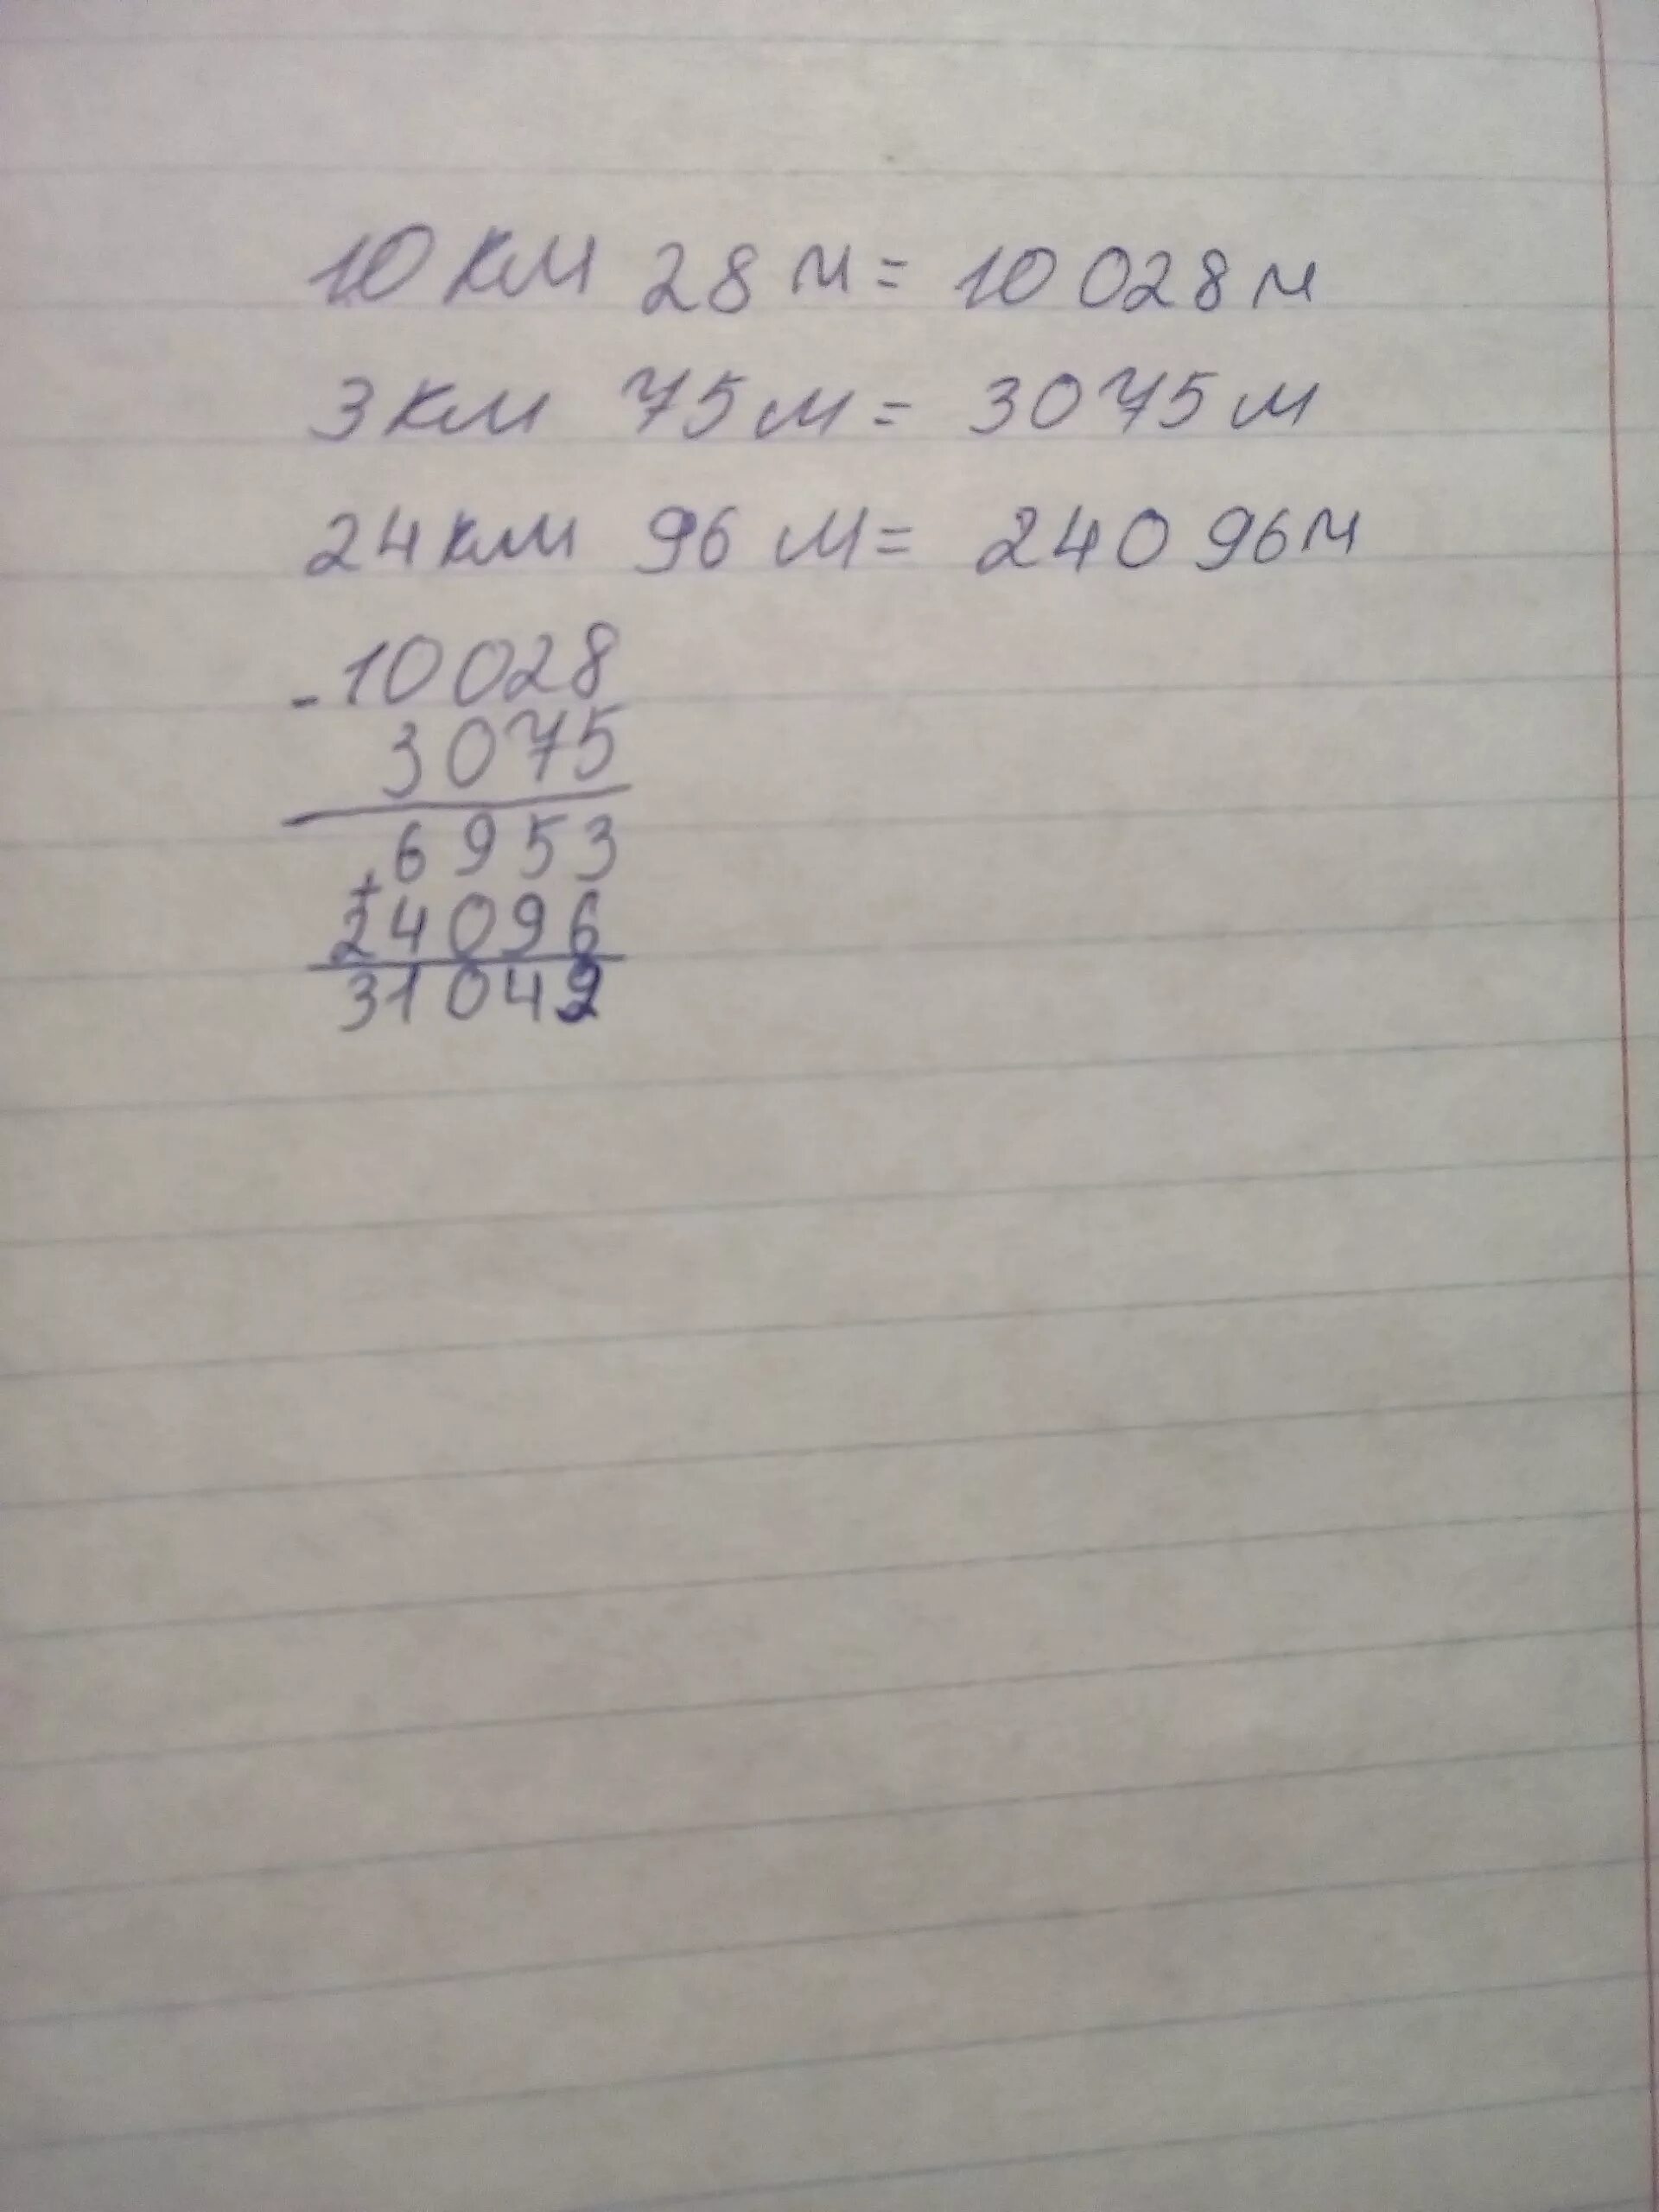 10 км 28 м = 10 028 м
3 км 75 м = 3075 м
24 км 96 м = 240 96 м
- 10028
3075
6953
+
24096
31049